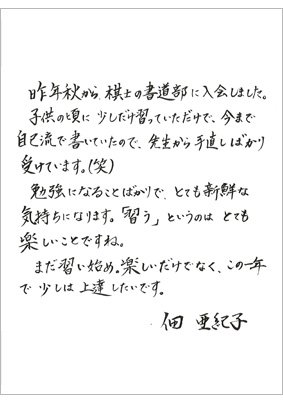 昨年秋から、棋士の書道部に入会しました。
子供の頃に 少しだけ習っていただけで、今まで
自己流で書いていたので、先生から手直しばかり
受けています。(笑)
勉強になることばかりで、とても新鮮な
気持ちになります。「習う」というのは とても
楽しいことですね。
まだ習い始め。楽しいだけでなく、この一年
で 少しは 上達したいです。
佃 亜紀子